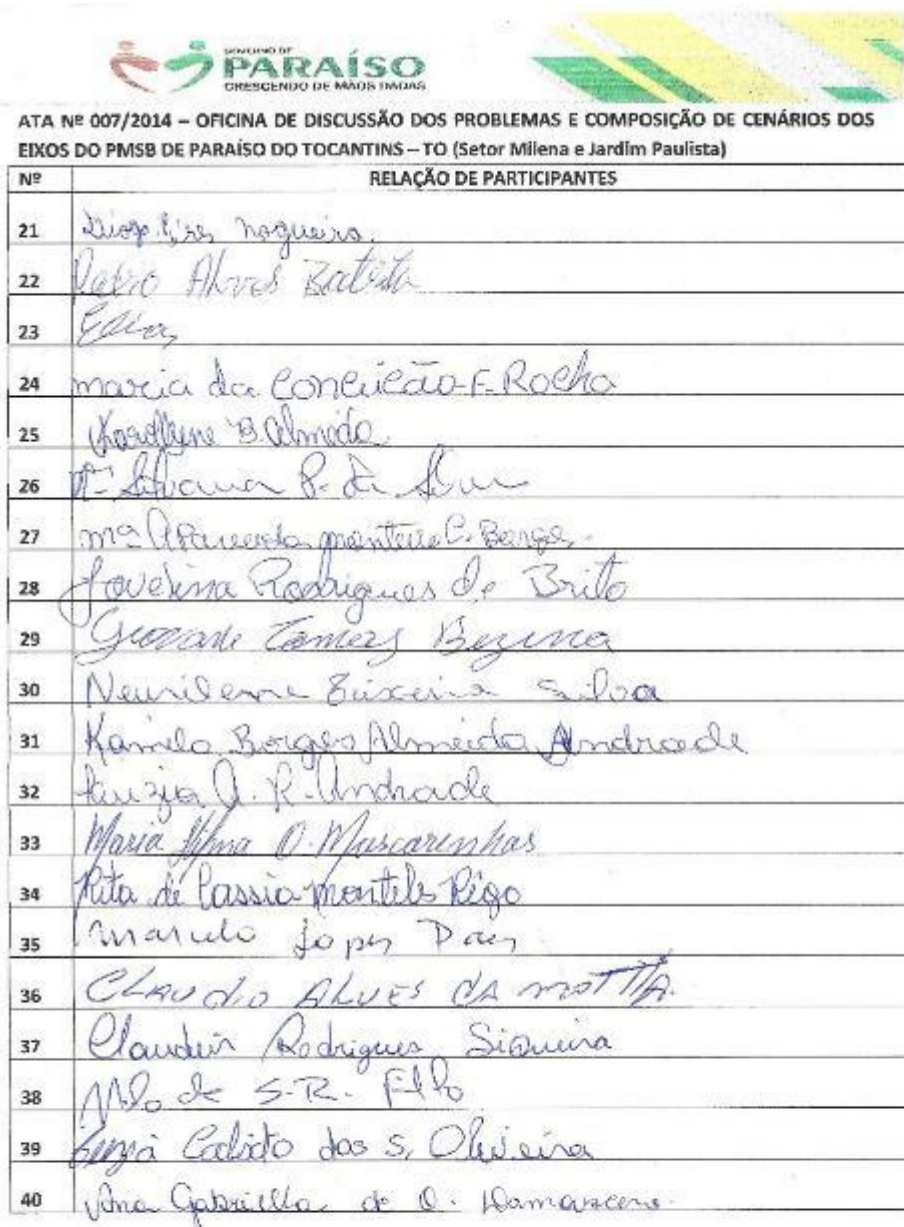 GOVERNO DE
PARAÍSO
CRESCENDO DE MÃOS DADAS
ATA Nº 007/2014 – OFICINA DE DISCUSSÃO DOS PROBLEMAS E COMPOSIÇÃO DE CENÁRIOS DOS
EIXOS DO PMSB DE PARAÍSO DO TOCANTINS – TO (Setor Milena e Jardim Paulista)
Nº RELAÇÃO DE PARTICIPANTES
21 Diogo Pires Nogueira
22 Pedro Alves Batista
23
24 maria da Conceicão F. Rocha
25 Karollyne B. Almeida
26 Mª Silvana P. da
27 mª Aparecida C. Borges
28 Jovelina Rodrigues de Brito
29 Giovane Bezerra
30 Neurilene Teixeira Silva
31 Kamila Borges Almeida Andrade
32 Luzia A. R. Andrade
33 Maria O. Mascarenhas
34 Rita de Cassia montelo Rêgo
35 Marcelo Lopes
36 CLAUDIO ALVES DA MOTTA.
37 Claudeir Rodrigues Siqueira
38 de S. R. Filho
39 Luzia dos S. Oliveira
40 Ana Gabriella de O. Damasceno